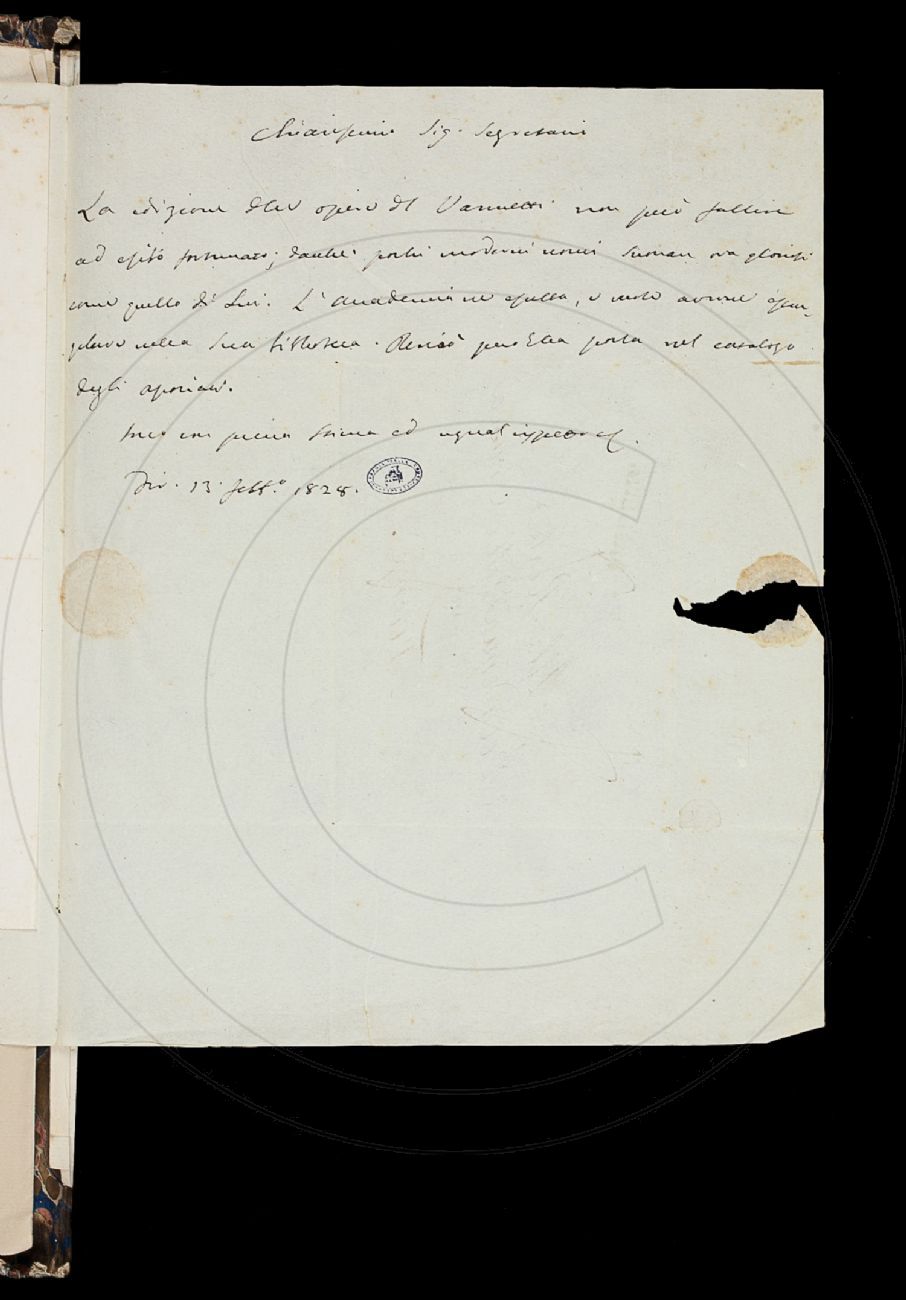 Chiarissimo Sig. Segretario
La edizione delle opere del Vannetti non può fallire
ad esito fortunato; dacchè pochi moderni nomi suonan ora gloriosi
come quello di Lui. L'Accademia ne esulta, e vuole averne esem-
plare nella sua biblioteca. Perciò per Ella porla nel catalogo
degli associati.
Sono con piena stima ed egual rispetto
Div. 13 sett.e 1828.